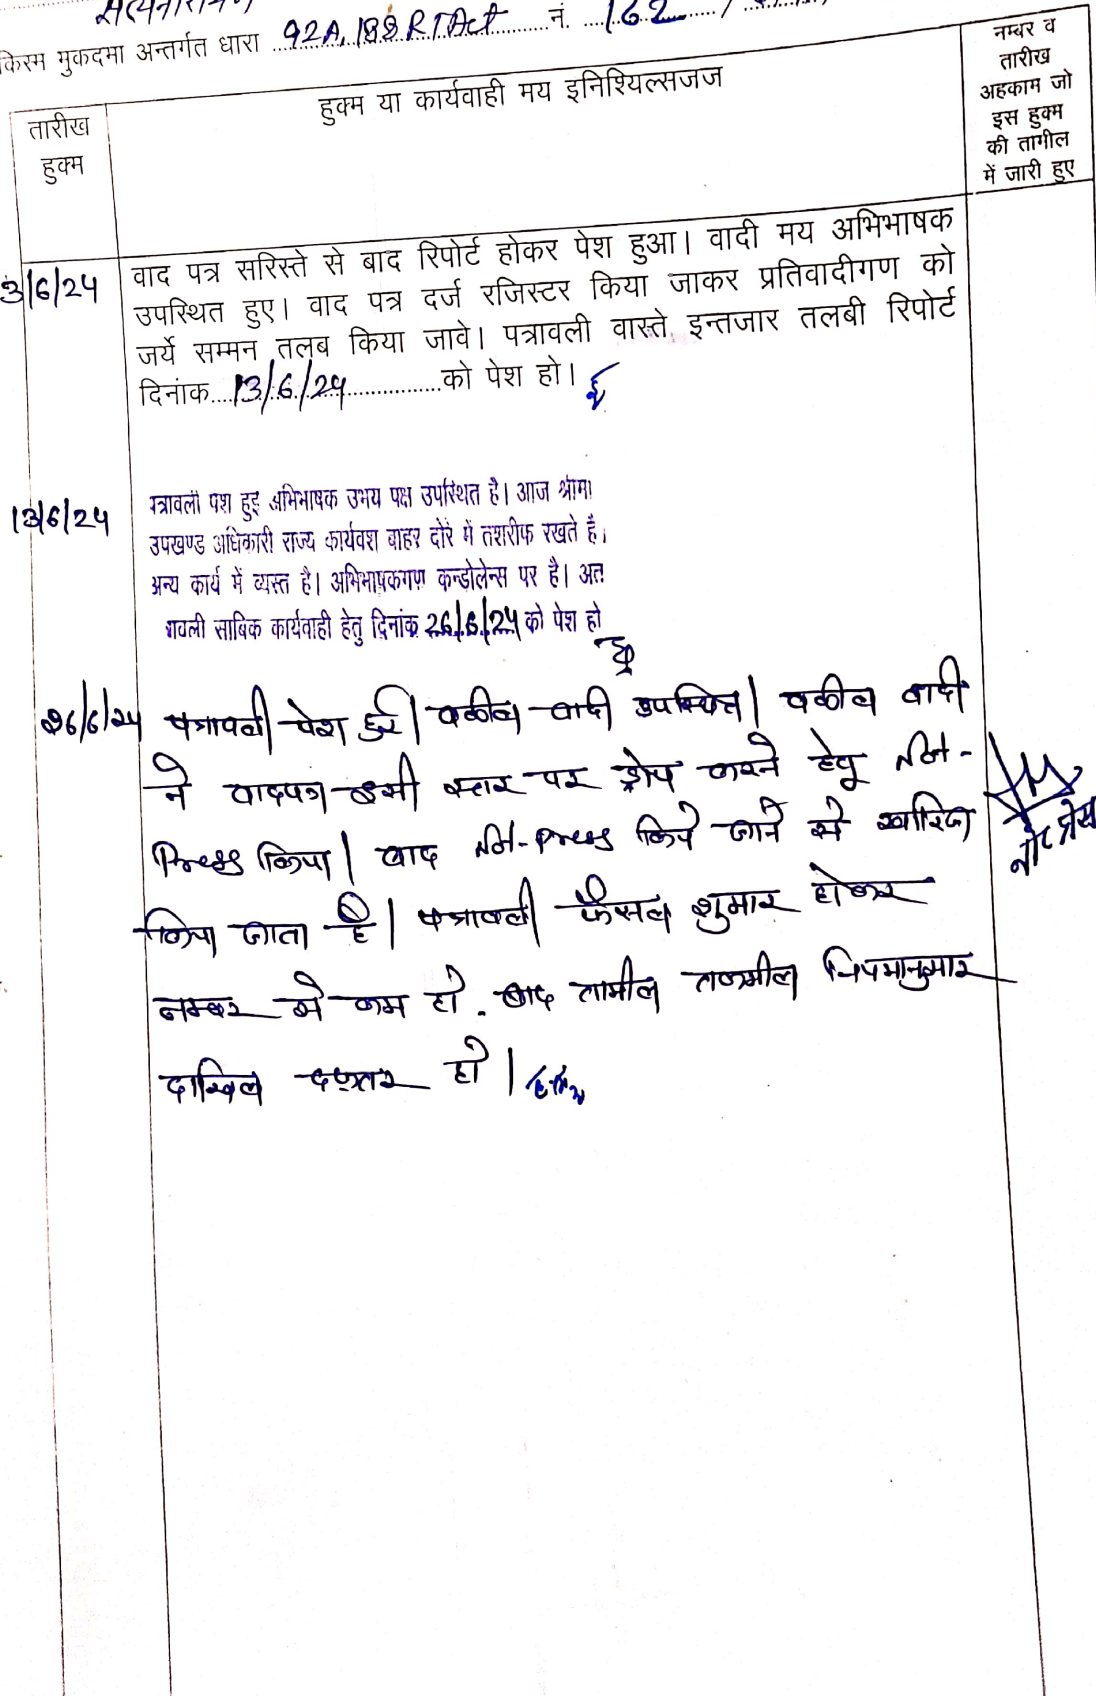 सत्यनारायण
किस्म मुकदमा अन्तर्गत धारा 92A, 188 RTAct नं. 162 /
तारीख हुक्म
हुक्म या कार्यवाही मय इनिशियल्सजज
नम्बर व
तारीख
अहकाम जो
इस हुक्म
की तामील
में जारी हुए
3/6/24 वाद पत्र सरिस्ते से बाद रिपोर्ट होकर पेश हुआ। वादी मय अभिभाषक
उपस्थित हुए। वाद पत्र दर्ज रजिस्टर किया जाकर प्रतिवादीगण को
जर्ये सम्मन तलब किया जावे। पत्रावली वास्ते इन्तजार तलबी रिपोर्ट
दिनांक....13/6/24................को पेश हो।
13/6/24 पत्रावली पेश हुइ अभिभाषक उभय पक्ष उपस्थित है। आज श्रीमा
उपखण्ड अधिकारी राज्य कार्यवश बाहर दोरे में तशरीफ रखते है।
अन्य कार्य में व्यस्त है। अभिभाषकगण कन्डोलेन्स पर है। अत
ावली साबिक कार्यवाही हेतु दिनांक 26/6/24 को पेश हो
26/6/24 पत्रावली पेश हुई। वकील वादी उपस्थित। वकील वादी
ने वादपत्र इसी स्तर पर ड्रोप करने हेतू Not-
Press किया। वाद Not-Press किये जाने से खारिज
किया जाता है। पत्रावली फैसल शुमार होकर
नम्बर से कम हो. बाद तामील तकमील नियमानुसार
दाखिल दफ्तर हो।
नोट प्रेस